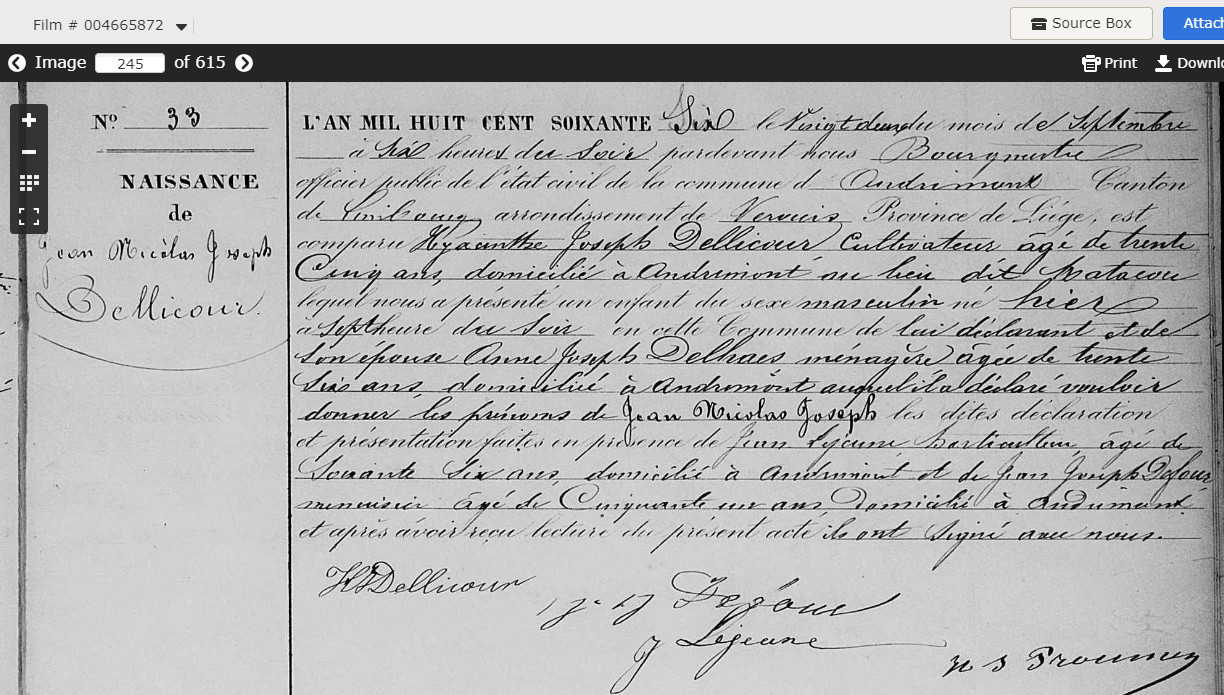 Film # 004665872
Source Box
Attach
Image 245 of 615
Print
Downlo
Nº 33
NAISSANCE
de
Jean Nicolas Joseph
Dellicour.
L'AN MIL HUIT CENT SOIXANTE Six le Vingt deux du mois de Septembre
à Six heures du Soir pardevant nous Bourgmestre
officier public de l'état civil de la commune d Andrimont Canton
de Limbourg arrondissement de Verviers Province de Liége, est
comparu Hyacinthe Joseph Dellicour Cultivateur âgé de trente
Cinq ans, domicilié à Andrimont au lieu dit
lequel nous a présenté un enfant du sexe masculin né hier
à Sept heure du Soir en cette Commune de lui déclarant et de
Son épouse Anne Joseph Delhaes ménagère âgée de trente
Six ans, domicilié à Andrimont auquel il a déclaré vouloir
donner les prénoms de Jean Nicolas Joseph les dites déclaration
et présentation faites en présence de Jean Lejeune horticulteur, âgé de
Soixante Six ans, domicilié à Andrimont et de Jean Joseph Defour
menuisier âgé de Cinquante un ans Domicilié à Andrimont
et après avoir reçu lecture du présent acte ils ont Signé avec nous.
HJDellicour
Defour
J Lejeune